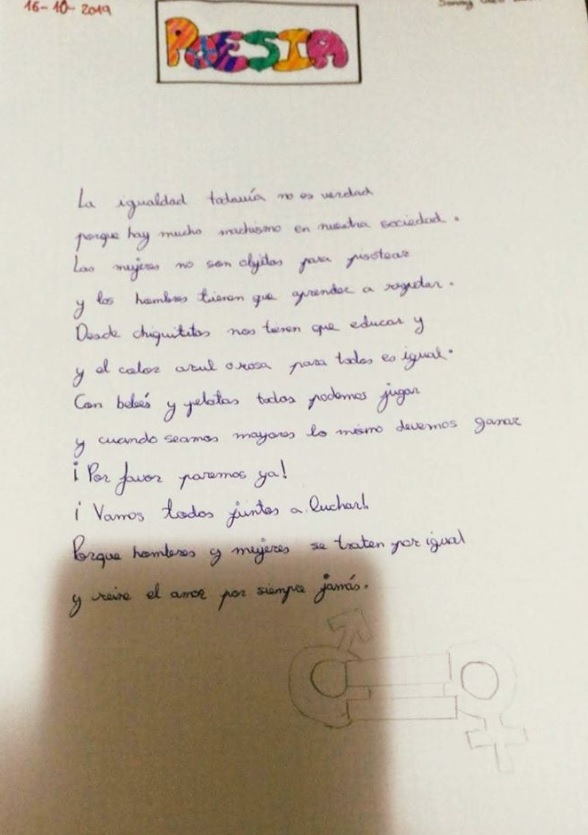 16-10-2019
POESIA
La igualdad todavía no es verdad
porque hay mucho machismo en nuestra sociedad.
Las mujeres no son objetos para pisotear
y los hombres tienen que aprender a respetar.
Desde chiquititos nos tienen que educar y
y el color azul o rosa para todos es igual.
Con bebés y pelotas todos podemos jugar
y cuando seamos mayores lo mismo devemos ganar
¡Por favor paremos ya!
¡Vamos todos juntos a luchar!
Porque hombres y mujeres se traten por igual
y reine el amor por siempre jamás.